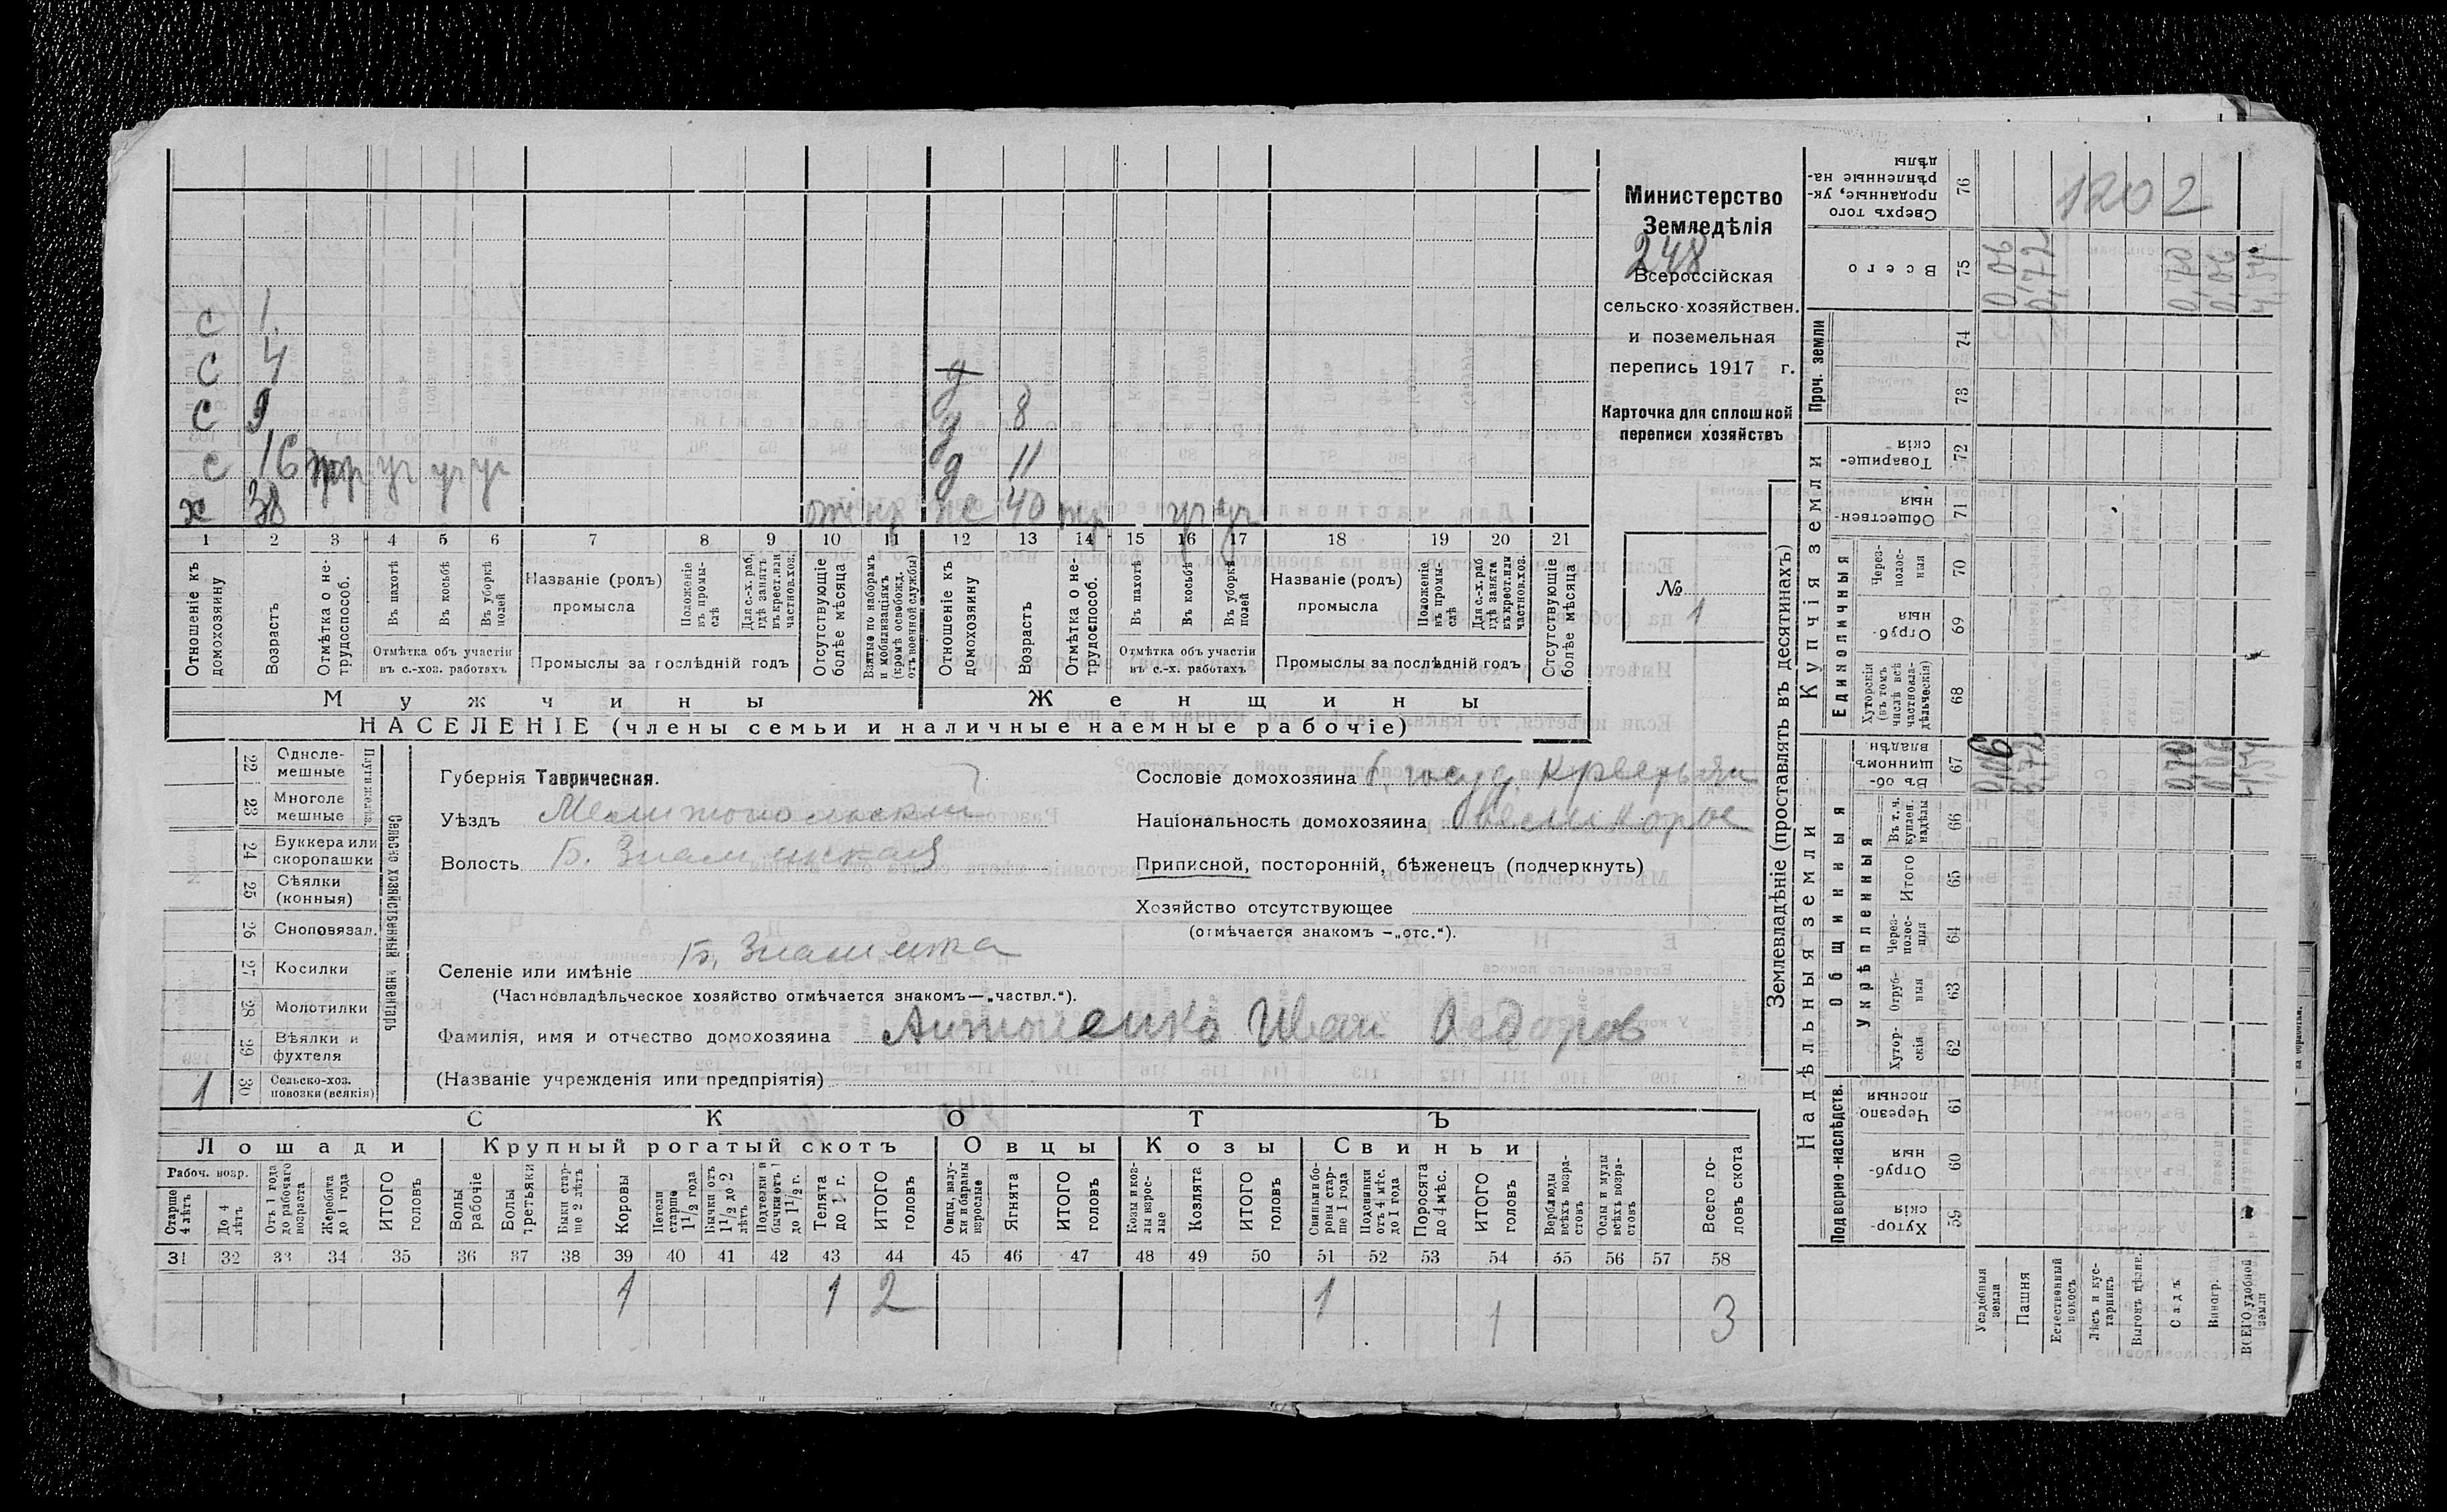 с 1
с 4 д
с 9 д 8
с 16 тр уч уч уч д 11
х 38 нр жс 40 тр уч уч
1 2 3 4 5 6 7 8 9 10 11 12 13 14 15 16 17 18 19 20 21
Отношеніе къ домохозяину
Возрастъ
Отмѣтка о не-
трудоспособ.
Въ пахотѣ
Въ косьбѣ
Въ уборкѣ
полей
Отмѣтка объ участіи
въ с.-хоз. работахъ
Названіе (родъ)
промысла
Положеніе
въ промы-
слѣ
Для с.-х. раб,
гдѣ занятъ
въ крест. или
частнов. хоз.
Промыслы за послѣдній годъ
Отсутствующіе
болѣе мѣсяца
Взятые по наборамъ
и мобилизаціямъ
(кромѣ освобожд.
отъ военной службы)
Отношеніе къ
домохозяину
Возрастъ
Отмѣтка о не-
трудоспособ.
Въ пахотѣ
Въ косьбѣ
Въ уборкѣ
полей
Отмѣтка объ участіи
въ с.-х. работахъ
Названіе (родъ)
промысла
Положеніе
въ промы-
слѣ
Для с.-х. раб
гдѣ занята
въ крест. или
частнов. хоз.
Промыслы за послѣдній годъ
Отсутствующіе
болѣе мѣсяца
Мужчины Женщины
НАСЕЛЕНІЕ (члены семьи и наличные наемные рабочіе)
Министерство
Земледѣлія
248
Всероссійская
сельско-хозяйствен.
и поземельная
перепись 1917 г.
Карточка для сплошной
переписи хозяйствъ
№
1
22 Одноле-
мешные
23 Многоле
мешные
Плуги желѣз.
24 Буккера или
скоропашки
25 Сѣялки
(конныя)
26 Сноповязал.
27 Косилки
28 Молотилки
29 Вѣялки и
фухтеля
1 30 Сельско-хоз.
повозки (всякія)
Сельско хозяйственный инвентарь
Губернія Таврическая.
Уѣздъ Мелитопольский
Волость Б. Знаменская
Селеніе или имѣніе Б. Знаменка
(Частновладѣльческое хозяйство отмѣчается знакомъ—„частвл.“).
Фамилія, имя и отчество домохозяина Антоненко Иван Федоров
(Названіе учрежденія или предпріятія)
Сословіе домохозяина б. госуд. крестьяни
Національность домохозяина великорос
Приписной, посторонній, бѣженецъ (подчеркнуть)
Хозяйство отсутствующее
(отмѣчается знакомъ —„отс.“).
СКОТЪ
Лошади Крупный рогатый скотъ Овцы Козы Свиньи
Рабоч. возр.
Старше
4 лѣтъ
До 4
лѣтъ
Отъ 1 года
до рабочаго
возраста
Жеребята
до 1 года
ИТОГО
головъ
Волы
рабочіе
Волы
третьяки
Быки стар-
ше 2 лѣтъ
Коровы
Нетели
старше
1 1/2 года
Бычки отъ
1 1/2 до 2
лѣтъ
Подтелки и
бычки отъ 1
до 1 1/2 г.
Телята
до 1 г.
ИТОГО
головъ
Овцы, валу-
хи и бараны
взрослые
Ягнята
ИТОГО
головъ
Козы и коз-
лы взрос-
лые
Козлята
ИТОГО
головъ
Свиньи и бо-
ровы стар-
ше 1 года
Подсвинки
отъ 4 мѣс.
до 1 года
Поросята
до 4 мѣс.
ИТОГО
головъ
Верблюды
всѣхъ возра-
стовъ
Ослы и мулы
всѣхъ возра-
стовъ
Всего го-
ловъ скота
31 32 33 34 35 36 37 38 39 40 41 42 43 44 45 46 47 48 49 50 51 52 53 54 55 56 57 58
1 1 2 1 1 3
Землевладѣніе (проставлять въ десятинахъ)
Надѣльныя земли
Купчія земли
Проч. земли
Подворно-наслѣдств.
Общинныя
Укрѣпленныя
Единоличныя
Сверхъ того
проданные, ук-
рѣпленные на-
дѣлы
76
1202
Всего
75
0,06
0,72
0,70
0,06
74
73
Товарище-
скія
72
Обществен-
ныя
71
Через-
полос-
ныя
70
Отруб-
ныя
69
Хуторскія
(въ томъ
числѣ всѣ
частновла-
дѣльческія)
68
Въ об-
щинномъ
владѣн.
67
0,06
0,72
0,70
0,06
Въ т. ч.
куплен.
надѣлы
66
Итого
65
Через-
полос-
ныя
64
Отруб-
ныя
63
Хутор-
скія
62
Черезпо
лосныя
61
Отруб-
ныя
60
Хутор-
скія
59
Усадебныя
земля
Пашня
Естественный
покосъ
Лѣсъ и кус-
тарникъ
Выгонъ цѣлин.
Садъ
Виногр.
ВСЕГО удобной
земли